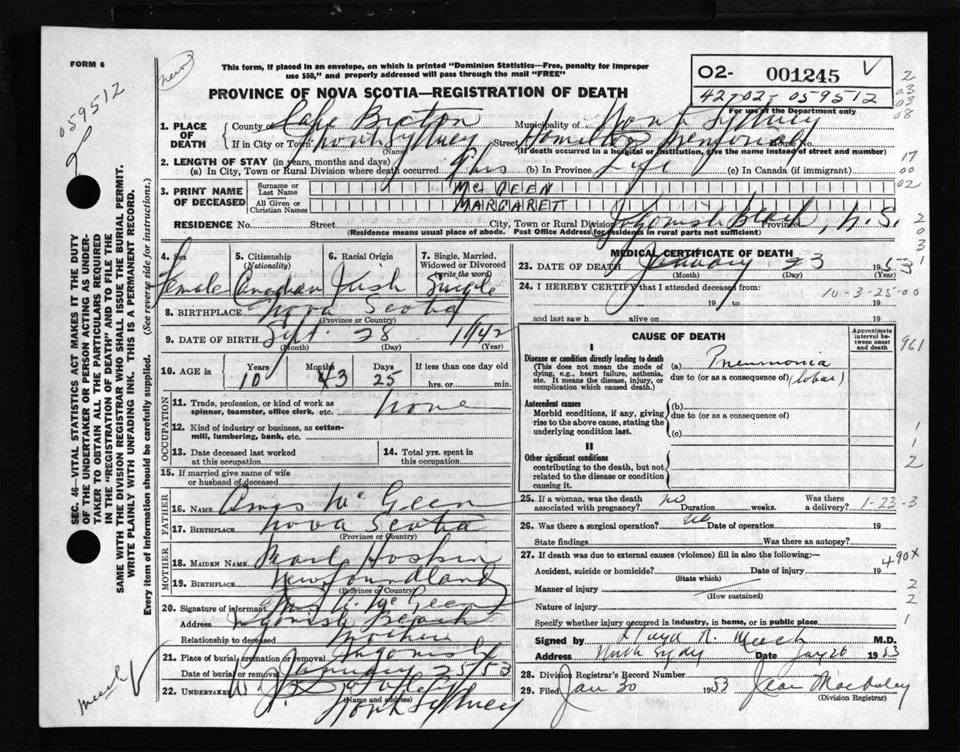 FORM 6
This form, if placed in an envelope, on which is printed "Dominion Statistics—Free, penalty for improper
use $50," and properly addressed will pass through the mail "FREE"
059512
02- 001245 V
42-02-059512
For use of the Department only
PROVINCE OF NOVA SCOTIA—REGISTRATION OF DEATH
1. PLACE OF DEATH
County of Cape Breton Municipality of North Sydney
If in City or Town North Sydney Street Hamilton Memorial House No.
(Name) (If death occurred in a hospital or institution, give the name instead of street and number)
2. LENGTH OF STAY (in years, months and days)
(a) In City, Town or Rural Division where death occurred 9 hrs (b) In Province Life (c) In Canada (if immigrant)
3. PRINT NAME OF DECEASED
Surname or Last Name MCGEEN
All Given or Christian Names MARGARETT
RESIDENCE No. Street City, Town or Rural Division Ingonish Beach Province N.S.
(Residence means usual place of abode. Post Office Address for residents in rural parts not sufficient)
4. Sex Female
5. Citizenship (Nationality) Canadian
6. Racial Origin Irish
7. Single, Married, Widowed or Divorced (write the word) Single
8. BIRTHPLACE Nova Scotia
(Province or Country)
9. DATE OF BIRTH Sept 28 1942
(Month) (Day) (Year)
10. AGE in Years 10 Months 3 Days 25 If less than one day
hrs. or min.
OCCUPATION
11. Trade, profession, or kind of work as spinner, teamster, office clerk, etc. None
12. Kind of industry or business, as cotton-mill, lumbering, bank, etc.
13. Date deceased last worked at this occupation
14. Total yrs. spent in this occupation
15. If married give name of wife or husband of deceased
FATHER
16. NAME Amos McGeen
17. BIRTHPLACE Nova Scotia
(Province or Country)
MOTHER
18. MAIDEN NAME Pearl Hoskin
19. BIRTHPLACE Newfoundland
(Province or Country)
20. Signature of informant McGeen
Address Ingonish Beach
Relationship to deceased Mother
21. Place of burial, cremation or removal Ingonish
Date of burial or removal January 25/53
22. UNDERTAKER
(Name and address)
North Sydney
MEDICAL CERTIFICATE OF DEATH
23. DATE OF DEATH January 23 1953
(Month) (Day)
24. I HEREBY CERTIFY that I attended deceased from
19 to 19
and last saw h alive on 19
10-3-25-00
CAUSE OF DEATH
Approximate interval between onset and death
I
Disease or condition directly leading to death
(This does not mean the mode of dying, e.g., heart failure, asthenia, etc. It means the disease, injury, or complication which caused death.)
(a) Pneumonia
due to (or as a consequence of) (lobar)
Antecedent causes
Morbid conditions, if any, giving rise to the above cause, stating the underlying condition last.
(b)
due to (or as a consequence of)
(c)
II
Other significant conditions
contributing to the death, but not related to the disease or condition causing it.
25. If a woman, was the death associated with pregnancy? No Duration weeks. Was there a delivery? 1-23-3
26. Was there a surgical operation? No Date of operation 19
State findings Was there an autopsy?
27. If death was due to external causes (violence) fill in also the following:—
490X
Accident, suicide or homicide? Date of injury 19
(State which)
Manner of injury
(How sustained)
Nature of injury
Specify whether injury occurred in industry, in home, or in public place
Signed by Lloyd R. Meech M.D.
Address North Sydney Date Jany 26 1953
28. Division Registrar's Record Number
29. Filed Jan 30 1953
(Division Registrar)
SEC. 46—VITAL STATISTICS ACT MAKES IT THE DUTY
OF THE UNDERTAKER OR PERSON ACTING AS UNDER-
TAKER TO OBTAIN ALL THE PARTICULARS REQUIRED
IN THE "REGISTRATION OF DEATH" AND TO FILE THE
SAME WITH THE DIVISION REGISTRAR WHO SHALL ISSUE THE BURIAL PERMIT.
WRITE PLAINLY WITH UNFADING INK. THIS IS A PERMANENT RECORD.
Every item of information should be carefully supplied. (See reverse side for instructions.)
2
03
03
08
17
00
02
2
03
1
961
1
1
2
2
2
1